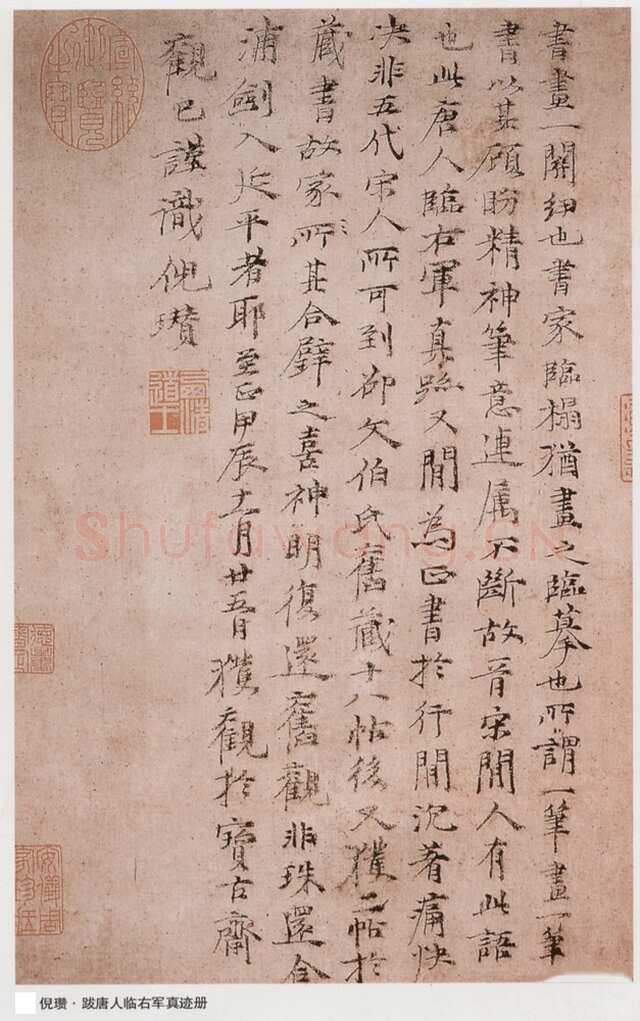 書畫一關紐也書家臨榻猶畫之臨摹也所謂一筆畫一筆
書以其顧盼精神筆意連属不斷故晉宋間人有此語
也此唐人臨右軍真跡又間為正書於行間沉著痛快
决非五代宋人所可到卻欠伯氏舊藏十八帖後又獲二帖於
藏書故家所其合璧之喜神明復還舊觀非珠還合
浦劍入延平者耶至正甲辰十一月廿五日獲觀於寶古齋
觀已謹識倪瓚
宣統御覽之寶
Shufawang.CN
倪瓒·跋唐人临右军真迹册